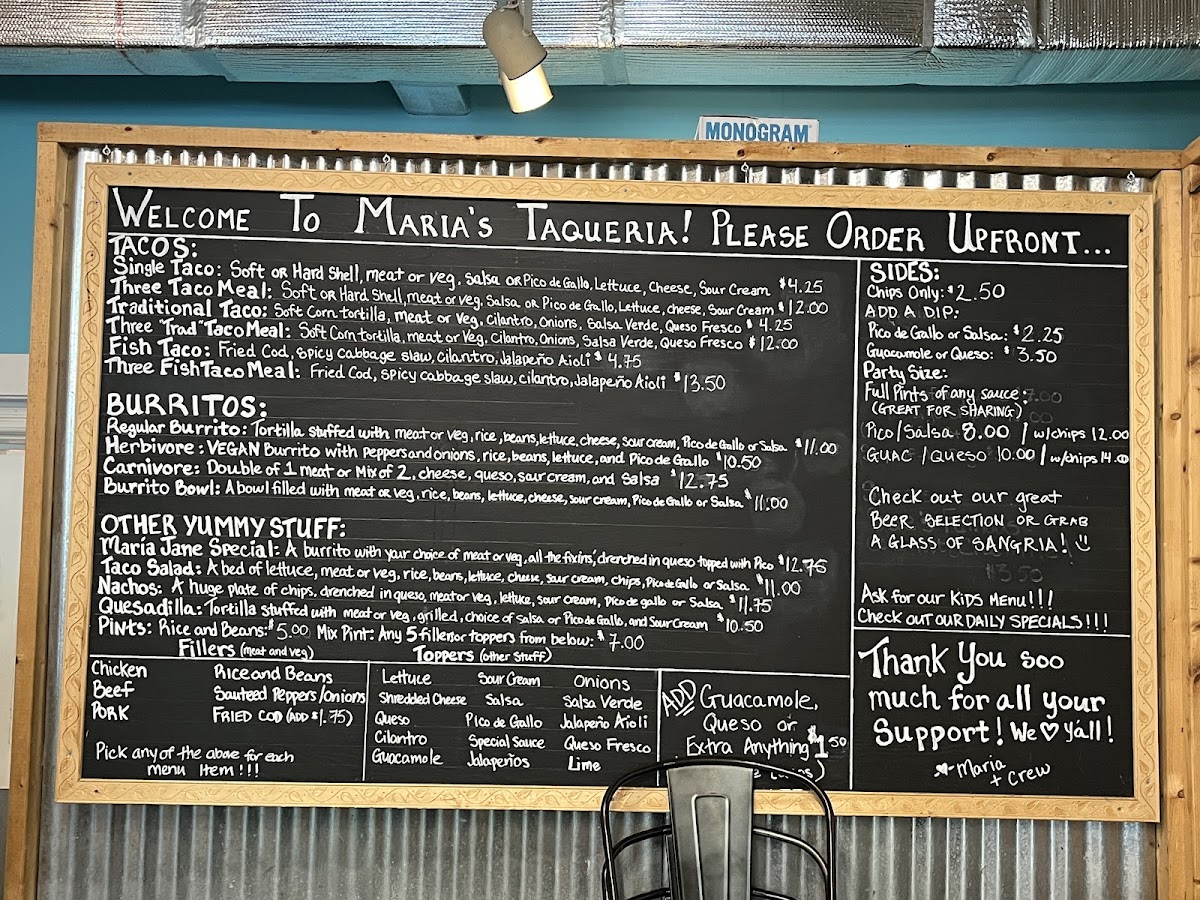 MONOGRAM
WELCOME TO MARIA'S TAQUERIA! PLEASE ORDER UPFRONT...
TACOS:
Single Taco: Soft OR Hard Shell, meat or veg, Salsa OR Pico de Gallo, Lettuce, Cheese, Sour Cream $4.25
Three Taco Meal: Soft OR Hard Shell, meat or veg, Salsa or Pico de Gallo, Lettuce, cheese, Sour Cream $12.00
Traditional Taco: Soft Corn tortilla, meat or Veg, Cilantro, Onions, Salsa Verde, Queso Fresco $4.25
Three "Trad" Taco Meal: Soft Corn tortilla, meat or Veg, Cilantro, Onions, Salsa Verde, Queso Fresco $12.00
Fish Taco: Fried Cod, spicy cabbage slaw, cilantro, Jalapeño Aioli $4.75
Three Fish Taco Meal: Fried Cod, spicy cabbage slaw, cilantro, Jalapeño Aioli $13.50
BURRITOS:
Regular Burrito: Tortilla stuffed with meat or veg, rice, beans, lettuce, cheese, sour cream, Pico de Gallo or Salsa $11.00
Herbivore: VEGAN Burrito with Peppers and onions, rice, beans, lettuce, and Pico de Gallo $10.50
Carnivore: Double of 1 meat or Mix of 2, cheese, queso, sour cream, and Salsa $12.75
Burrito Bowl: A bowl filled with meat or veg, rice, beans, lettuce, cheese, sour cream, Pico de Gallo or Salsa $11.00
OTHER YUMMY STUFF:
Maria Jane Special: A burrito with your choice of meat or veg, all the fixins', drenched in queso topped with Pico $12.75
Taco Salad: A bed of lettuce, meat or veg, rice, beans, lettuce, cheese, sour cream, chips, Pico de Gallo or Salsa $11.00
Nachos: A huge plate of chips, drenched in queso, meat or veg, lettuce, sour cream, Pico de gallo or Salsa $11.75
Quesadilla: Tortilla stuffed with meat or veg, grilled, choice of salsa or Pico de Gallo, and Sour Cream $10.50
Pints: Rice and Beans: $5.00 Mix Pint: Any 5 fillers or toppers from below: $7.00
Fillers (meat and veg)
Chicken Rice and Beans
Beef Sauteed Peppers/Onions
PORK FRIED COD (ADD $1.75)
Pick any of the above for each
menu Item!!!
Toppers (other stuff)
Lettuce Sour Cream Onions
Shredded Cheese Salsa Salsa Verde
Queso Pico de Gallo Jalapeño Aioli
Cilantro Special Sauce Queso Fresco
Guacamole Jalapeños Lime
ADD Guacamole,
Queso or
Extra Anything $1.50
SIDES:
Chips Only: $2.50
ADD A DIP:
Pico de Gallo or Salsa: $2.25
Guacamole or Queso: $3.50
Party Size:
Full Pints of any sauce:
(GREAT FOR SHARING)
Pico/Salsa 8.00 / w/chips 12.00
GUAC/QUESO 10.00 / w/chips 14.00
Check out our great
BEER SELECTION OR GRAB
A GLASS OF SANGRIA!
$13.50
Ask for our KIDS MENU!!!
Check out OUR DAILY SPECIALS!!!
Thank You soo
much for all your
Support! We ♡ Ya'll!
Maria
+ Crew